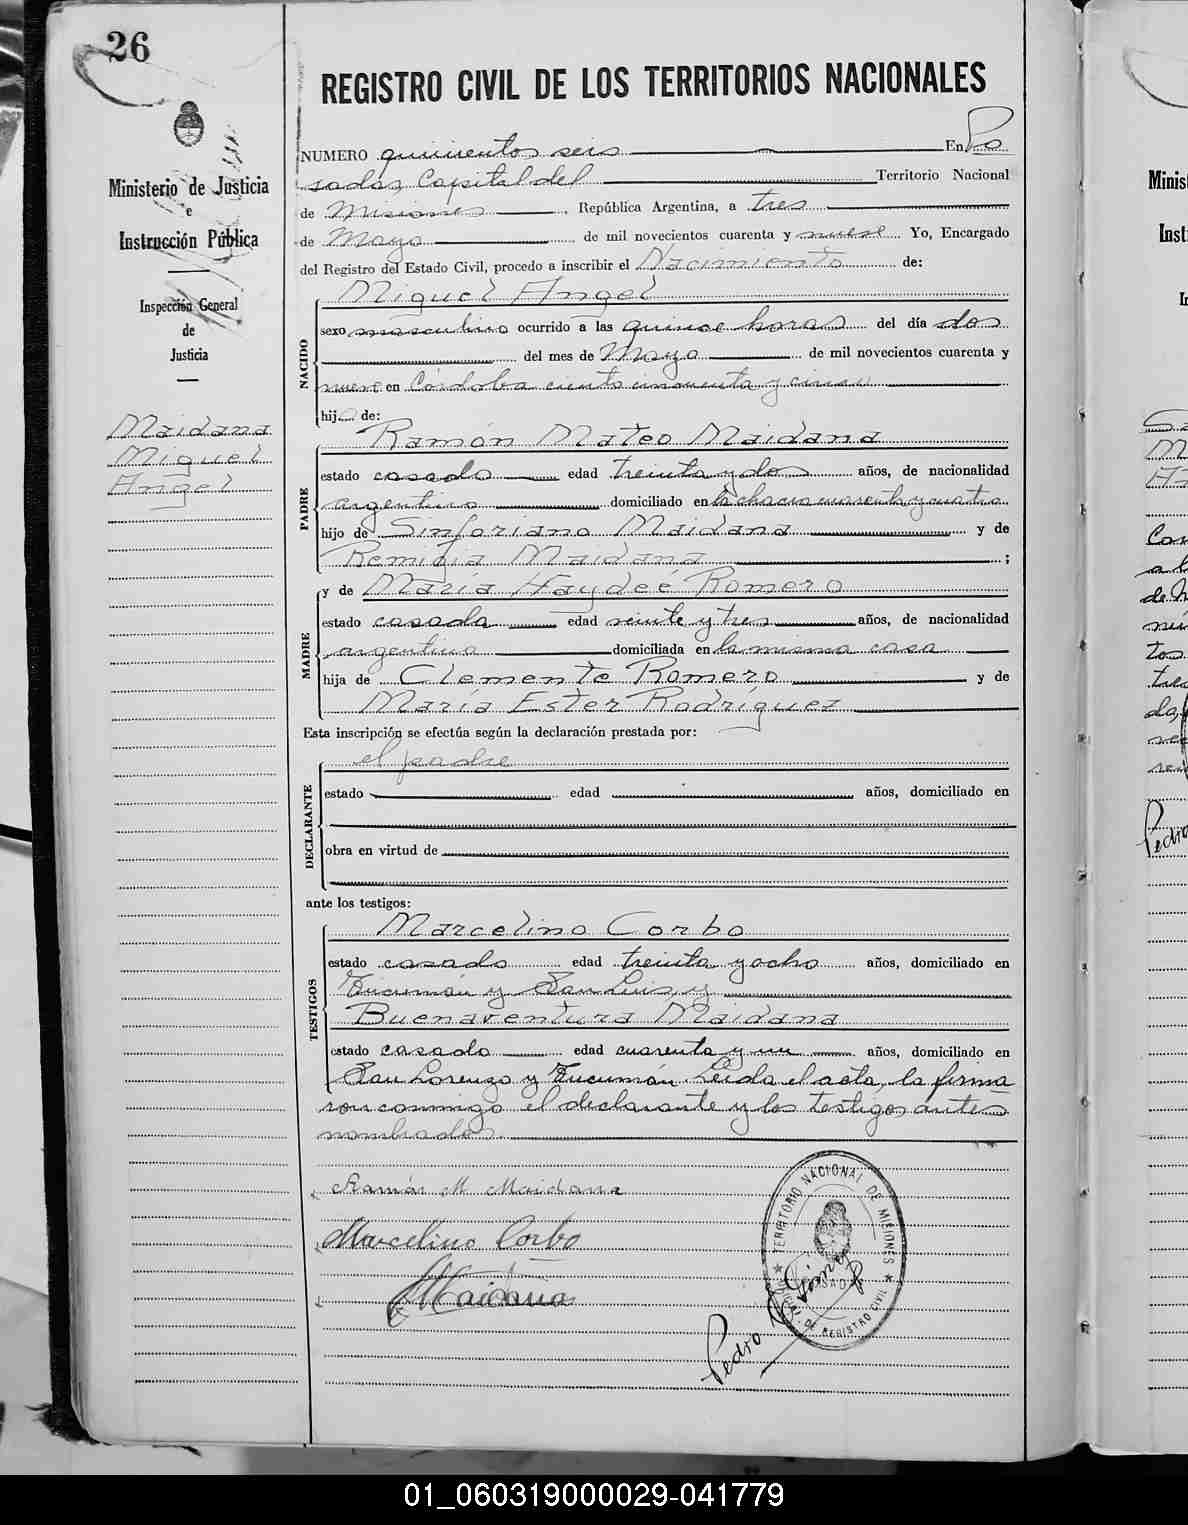 26
REGISTRO CIVIL DE LOS TERRITORIOS NACIONALES
Ministerio de Justicia
e
Instrucción Pública
Inspección General
de
Justicia
Maidana
Miguel
Angel
NUMERO quinientos seis En Po
sadas, Capital del Territorio Nacional
de Misiones, República Argentina, a tres
de Mayo de mil novecientos cuarenta y nueve Yo, Encargado
del Registro del Estado Civil, procedo a inscribir el Nacimiento de:
NACIDO
Miguel Angel
sexo masculino ocurrido a las quince horas del día dos
del mes de Mayo de mil novecientos cuarenta y
nueve en Córdoba ciento cincuenta y cinco
hijo de:
PADRE
Ramón Mateo Maidana
estado casado edad treinta y dos años, de nacionalidad
argentino domiciliado en la chacra cuarenta y cuatro
hijo de Sinforiano Maidana y de
Remigia Maidana ;
MADRE
y de María Haydeé Romero
estado casada edad veinte y tres años, de nacionalidad
argentina domiciliada en la misma casa
hija de Clemente Romero y de
María Ester Rodríguez
Esta inscripción se efectúa según la declaración prestada por:
DECLARANTE
el padre
estado edad años, domiciliado en
obra en virtud de
ante los testigos:
TESTIGOS
Marcelino Corbo
estado casado edad treinta y ocho años, domiciliado en
Tucumán y San Luis, y
Buenaventura Maidana
estado casado edad cuarenta y un años, domiciliado en
San Lorenzo y Tucumán. Leída el acta, la firma
ron conmigo el declarante y los testigos antes
nombrados.
Ramón M Maidana
Marcelino Corbo
Maidana
TERRITORIO NACIONAL DE MISIONES
DE REGISTRO CIVIL
Pedro Gómez
Minis
Inst
Con
a l
de N
nú
tos
tre
da,
Pedro
01_060319000029-041779